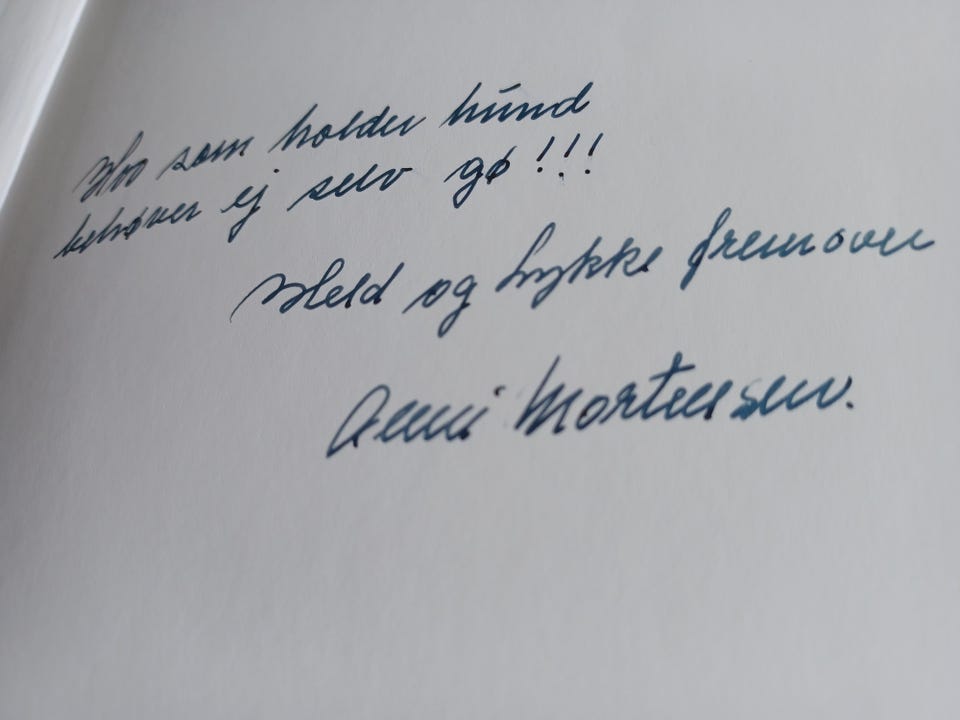 Hvo som holder hund
behøver ej selv gø!!!
Held og Lykke fremover
Anni Mortensen.